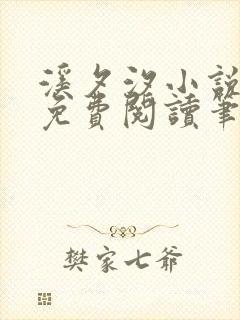 溪夕汐小說
免費閱讀筆
樊家七爺